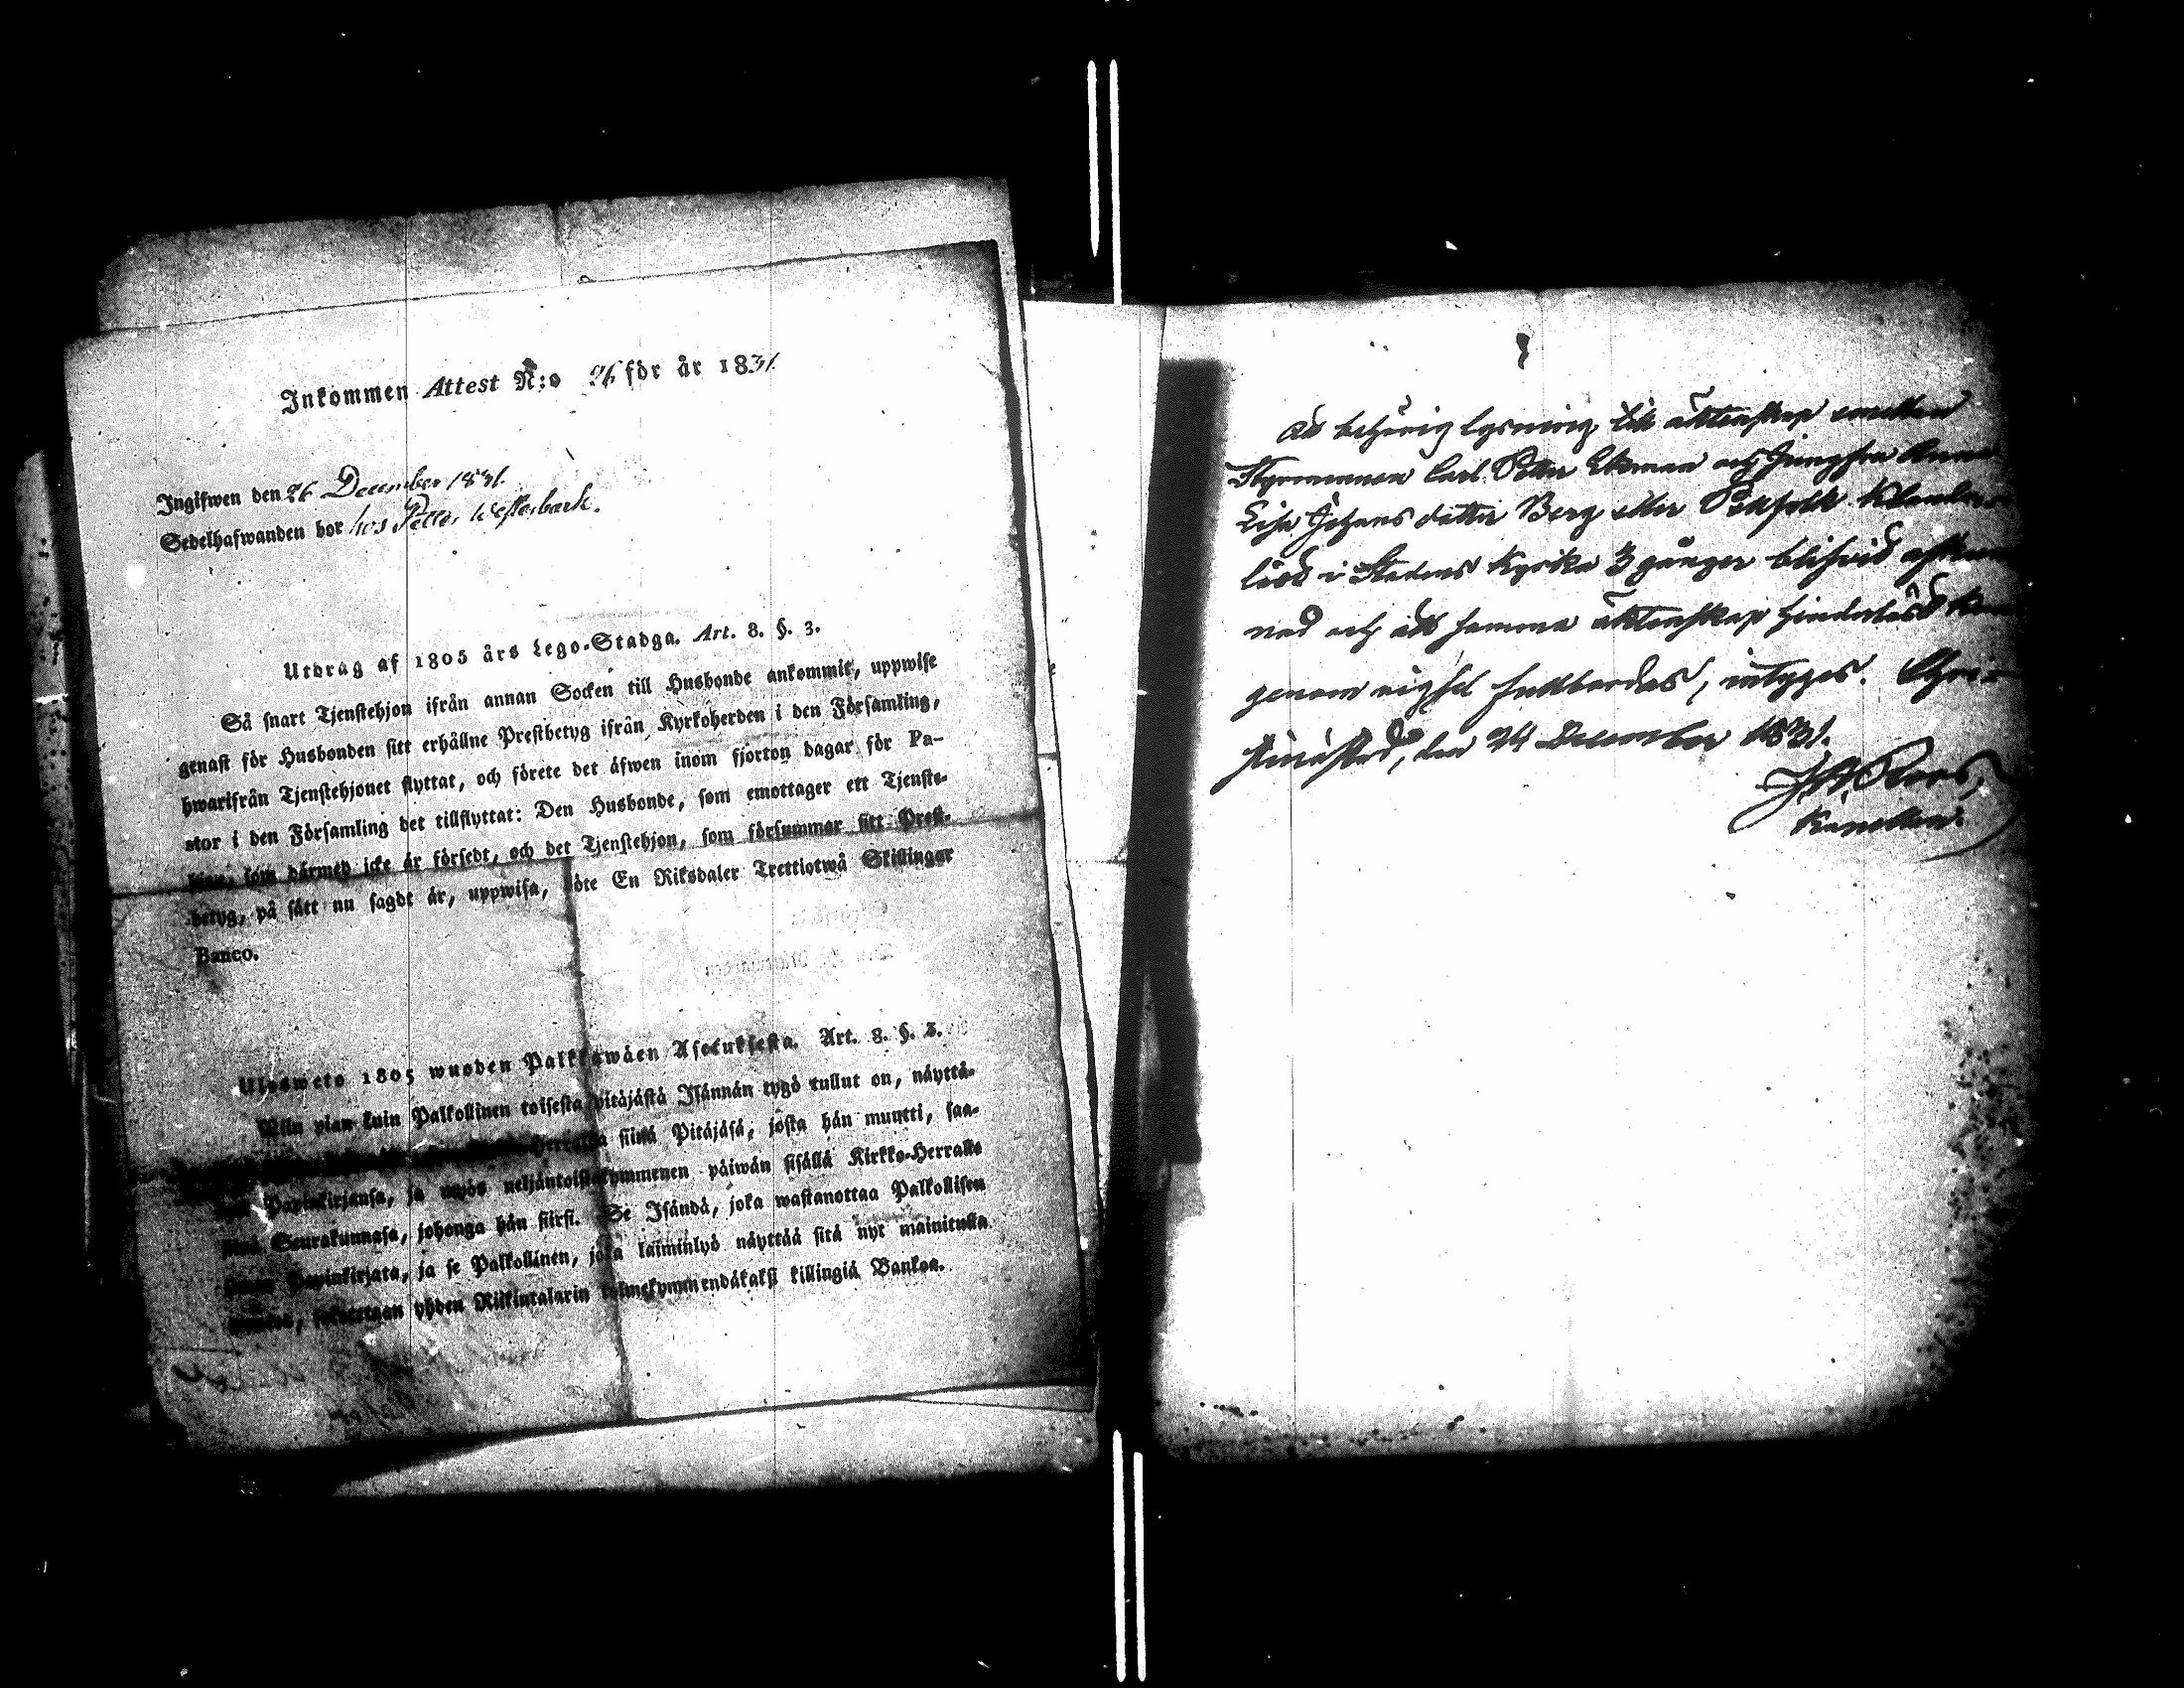 Inkommen Attest N:o 26 för år 1831.
Ingifwen den 26 December 1831.
Sedelhafwanden bor hos Petter Westerback.
Utdrag af 1805 års Lego-Stadga. Art. 8. §. 3.
Så snart Tjenstehjon ifrån annan Socken till Husbonde ankommit, uppwise
genast för Husbonden sitt erhållne Prestbetyg ifrån Kyrkoherden i den Församling,
hwarifrån Tjenstehjonet flyttat, och förete det äfwen inom fjorton dagar för Pa-
stor i den Församling det tillflyttat: Den Husbonde, som emottager ett Tjenste-
hjon, som därmed icke är försedt, och det Tjenstehjon, som försummar sitt Prest-
betyg, på sätt nu sagdt är, uppwisa, böte En Riksdaler Trettiotwå Skillingar
Banco.
Ulosweto 1805 wuoden Palkkawäen Asetuksesta. Art. 8. §. 3.
Niin pian kuin Palkollinen toisesta pitäjästä Isännän tygö tullut on, näyttä-
siinä Pitäjäsä, josta hän muutti, saa-
Papinkirjansa, ja myös neljäntoistakymmenen päiwän sisällä Kirkko-Herralle
siinä Seurakunnasa, johonga hän siirsi. Se Isändä, joka wastanottaa Palkollisen
Papinkirjata, ja se Palkollinen, joka laiminlyö näyttää sitä nyt mainitulla
yhden Riikintalarin kolmekymmendäkaksi killingiä Bankoa.
At behörig lysning till äktenskap emellan
Styrmannen Carl Petter Ekman och Jungfrun Anna
Lisa Johans dotter Berg eller
läst i Stadens Kyrka 3 gånger blifvid
nad och att samma äktenskap hinderlöst kan
genom vigsel fullbordas, intyges. Chri-
stinestad, den 24 December 1831.